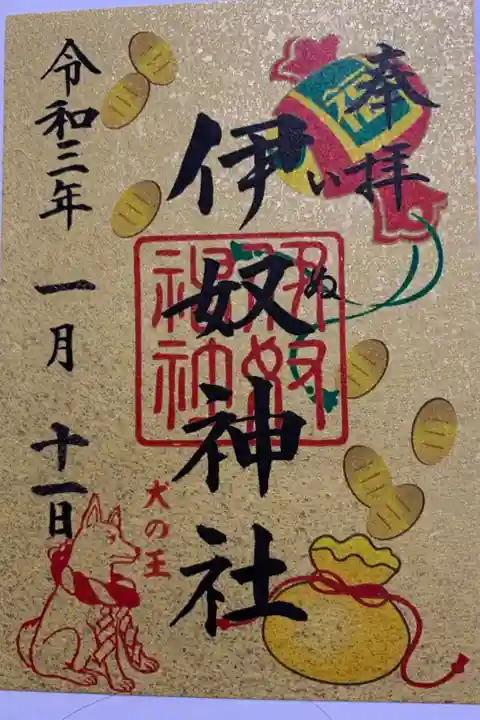 奉拝
福
伊奴神社
いぬ
令和三年 一月 十一日
犬の王